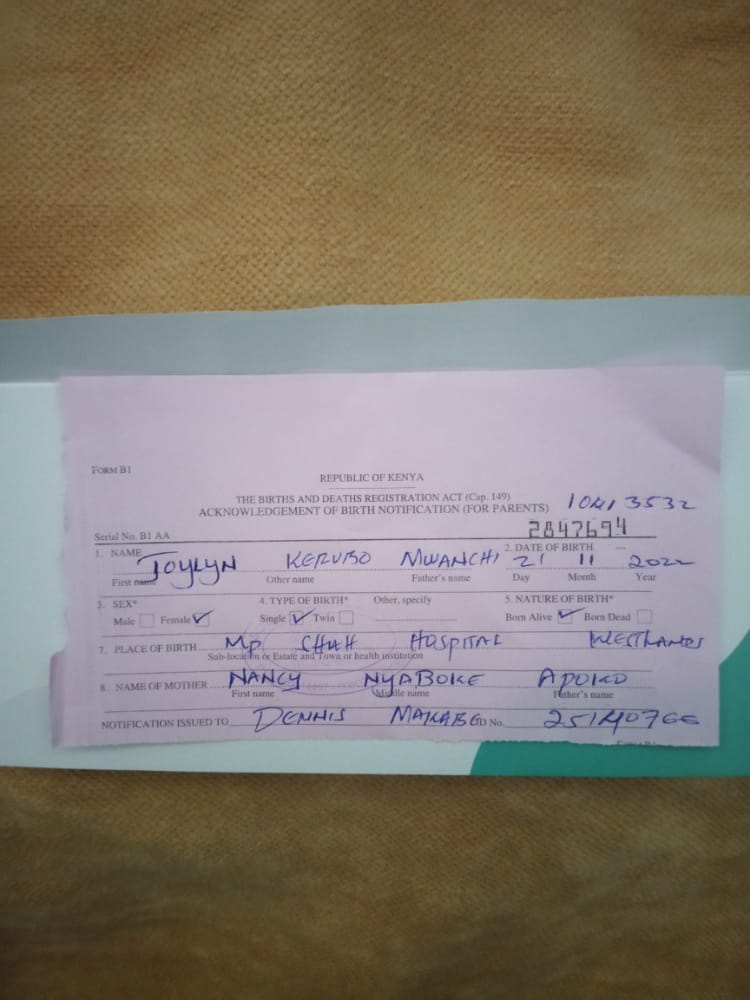 FORM B1
REPUBLIC OF KENYA
THE BIRTHS AND DEATHS REGISTRATION ACT (Cap. 149)
ACKNOWLEDGEMENT OF BIRTH NOTIFICATION (FOR PARENTS) 10213532
Serial No. B1 AA 2847694
1. NAME JOYLYN KERUBO MWANCHI 2. DATE OF BIRTH 21 11 2022
First name Other name Father's name Day Month Year
3. SEX* 4. TYPE OF BIRTH* Other, specify 5. NATURE OF BIRTH*
Male Female Single Twin Born Alive Born Dead
7. PLACE OF BIRTH MP SHAH HOSPITAL WESTLANDS
Sub-location or Estate and Town or health institution
8. NAME OF MOTHER NANCY NYABOKE APOKO
First name Middle name Father's name
NOTIFICATION ISSUED TO DENNIS ID No.